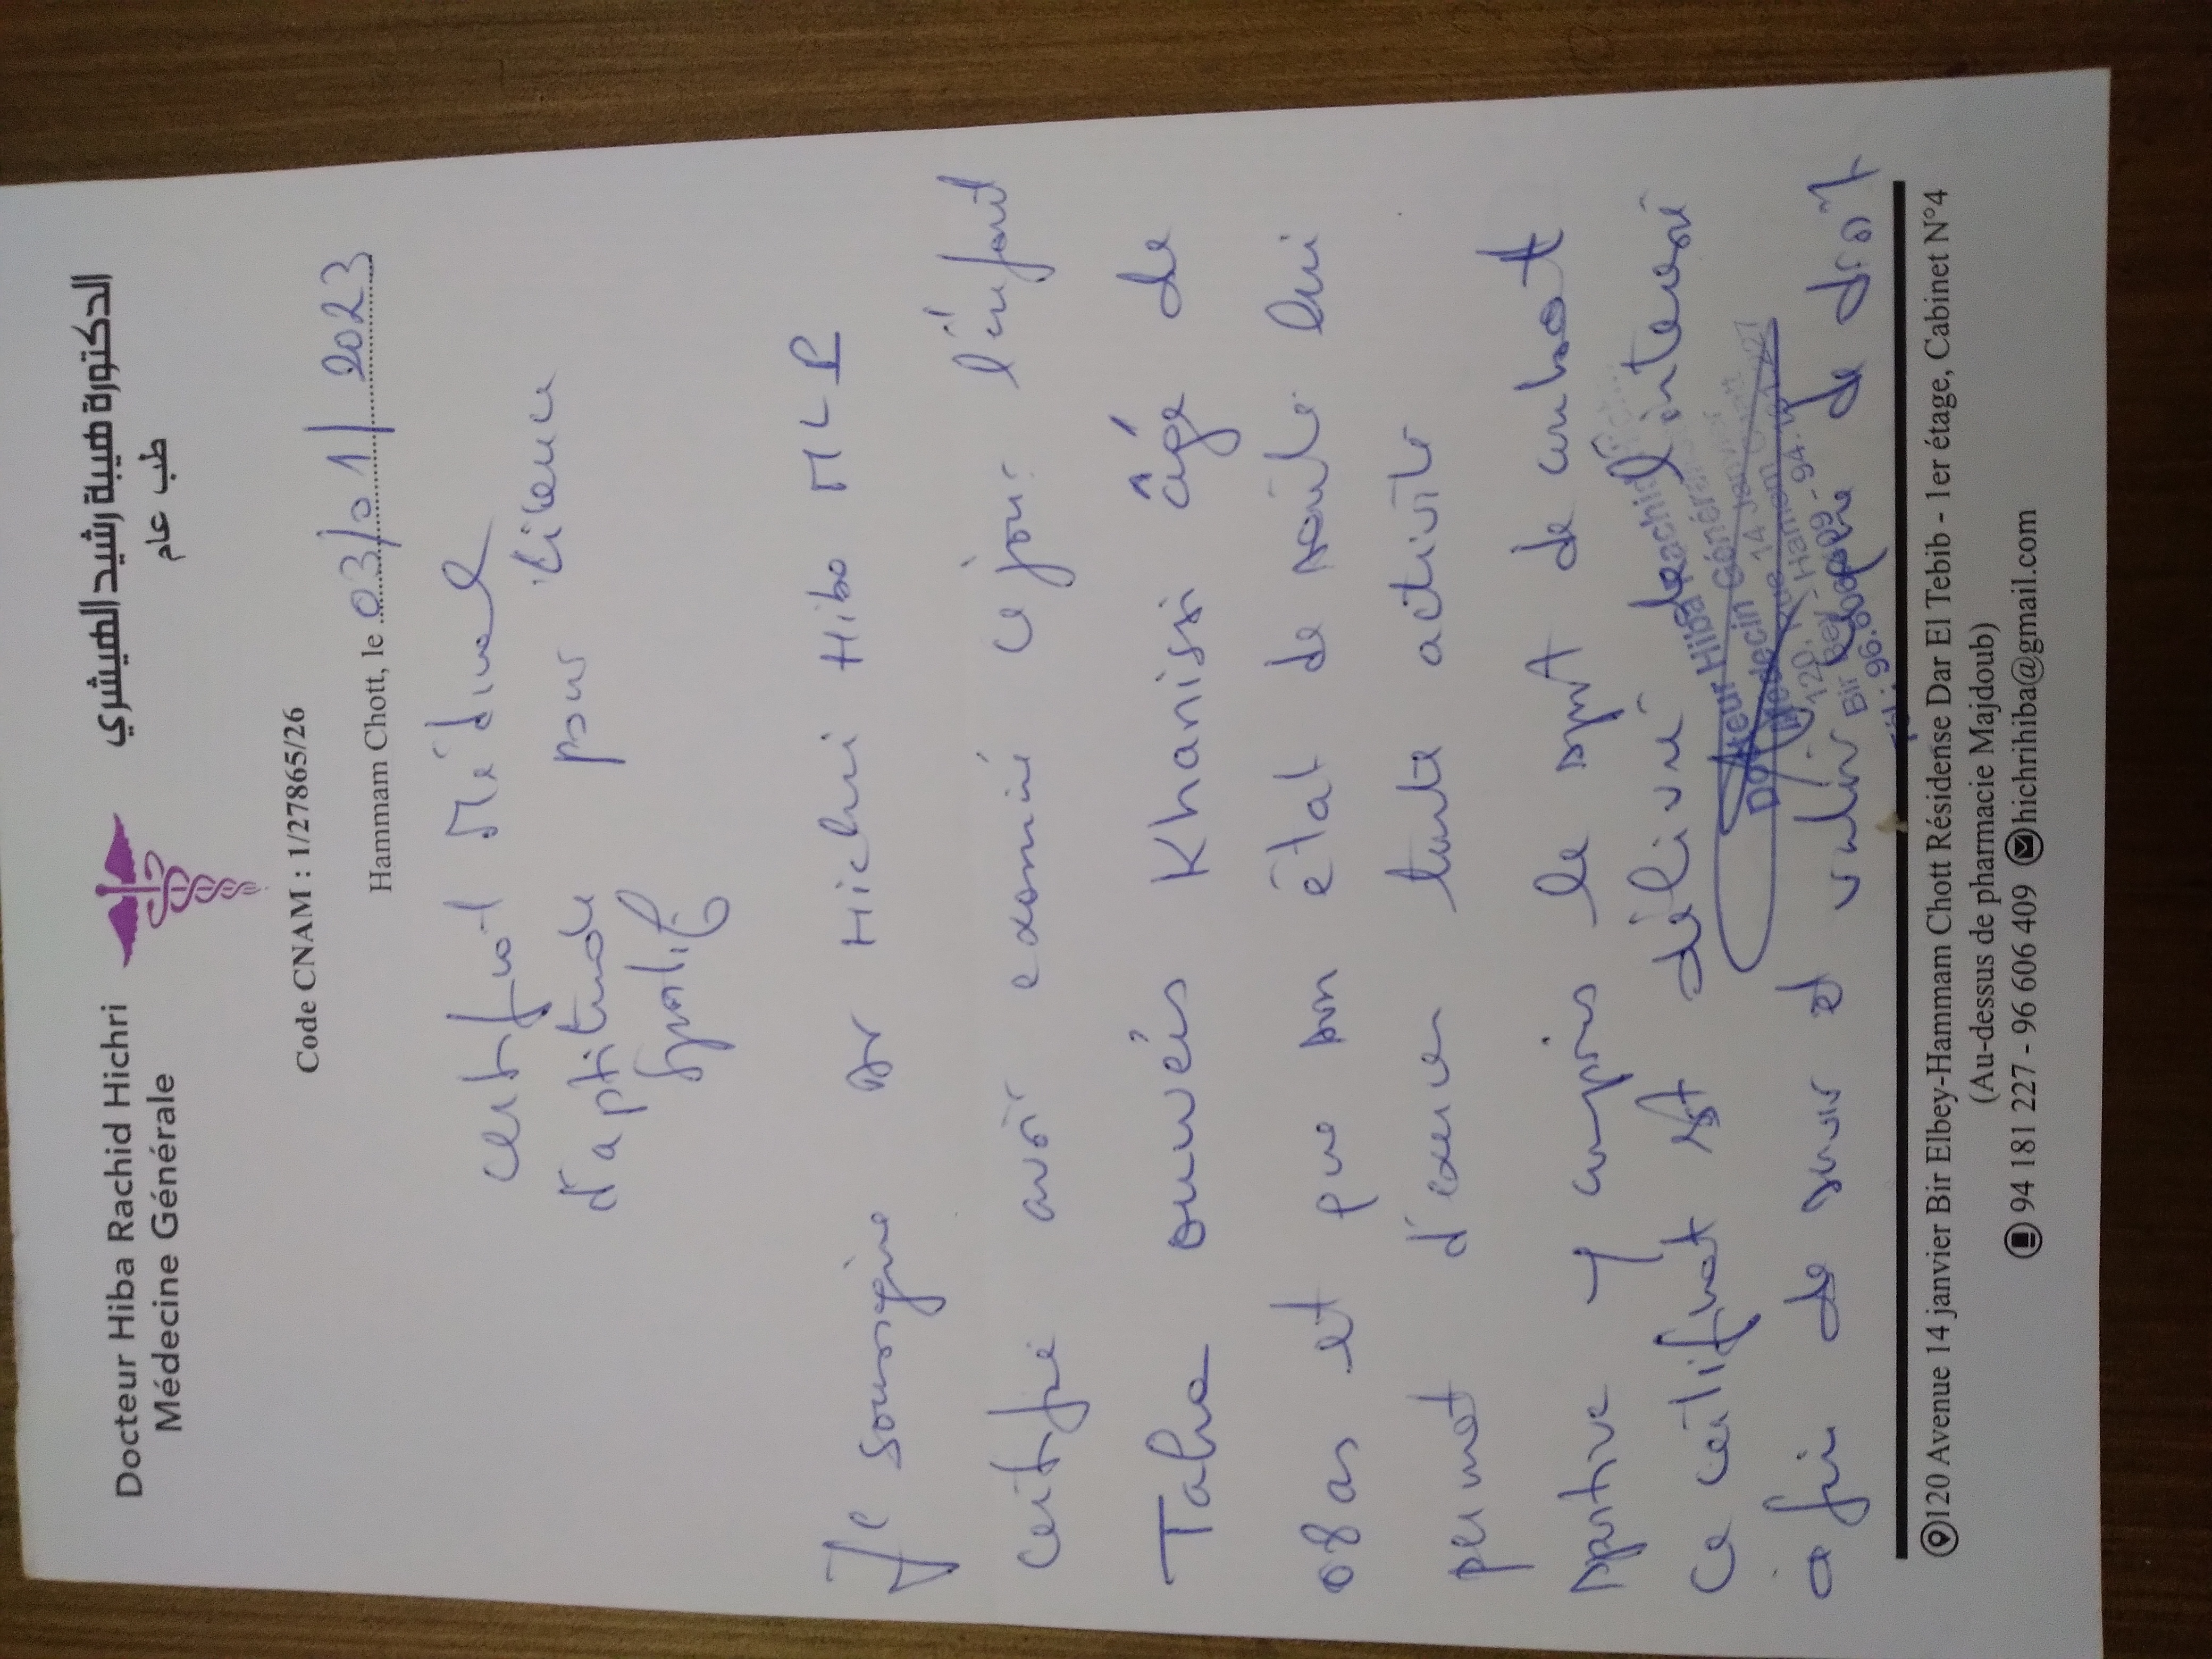 Docteur Hiba Rachid Hichri
Médecine Générale
الدكتورة هيبة رشيد الهيشري
طب عام
Code CNAM : 1/27865/26
Hammam Chott, le 03/01/2023
Certificat Médical
d'aptitude pour licence
sportif
Je soussigné Dr Hichri Hiba MLP
certifie avoir examiné ce jour l'enfant
Taha ouwéis Khanissi âgé de
08 as et que son état de santé lui
permet d'exercer toute activité
sportive y compris le sport de combat
Ce certificat est délivré à l'intéressé
Docteur Hiba Rachid
Médecin Générale
120, Avenue 14 Janvier
Bir Bey - Hammam Chott
afin de servir et valoir de droit
120 Avenue 14 janvier Bir Elbey-Hammam Chott Résidense Dar El Tebib - 1er étage, Cabinet N°4
(Au-dessus de pharmacie Majdoub)
94 181 227 - 96 606 409 hichrihiba@gmail.com